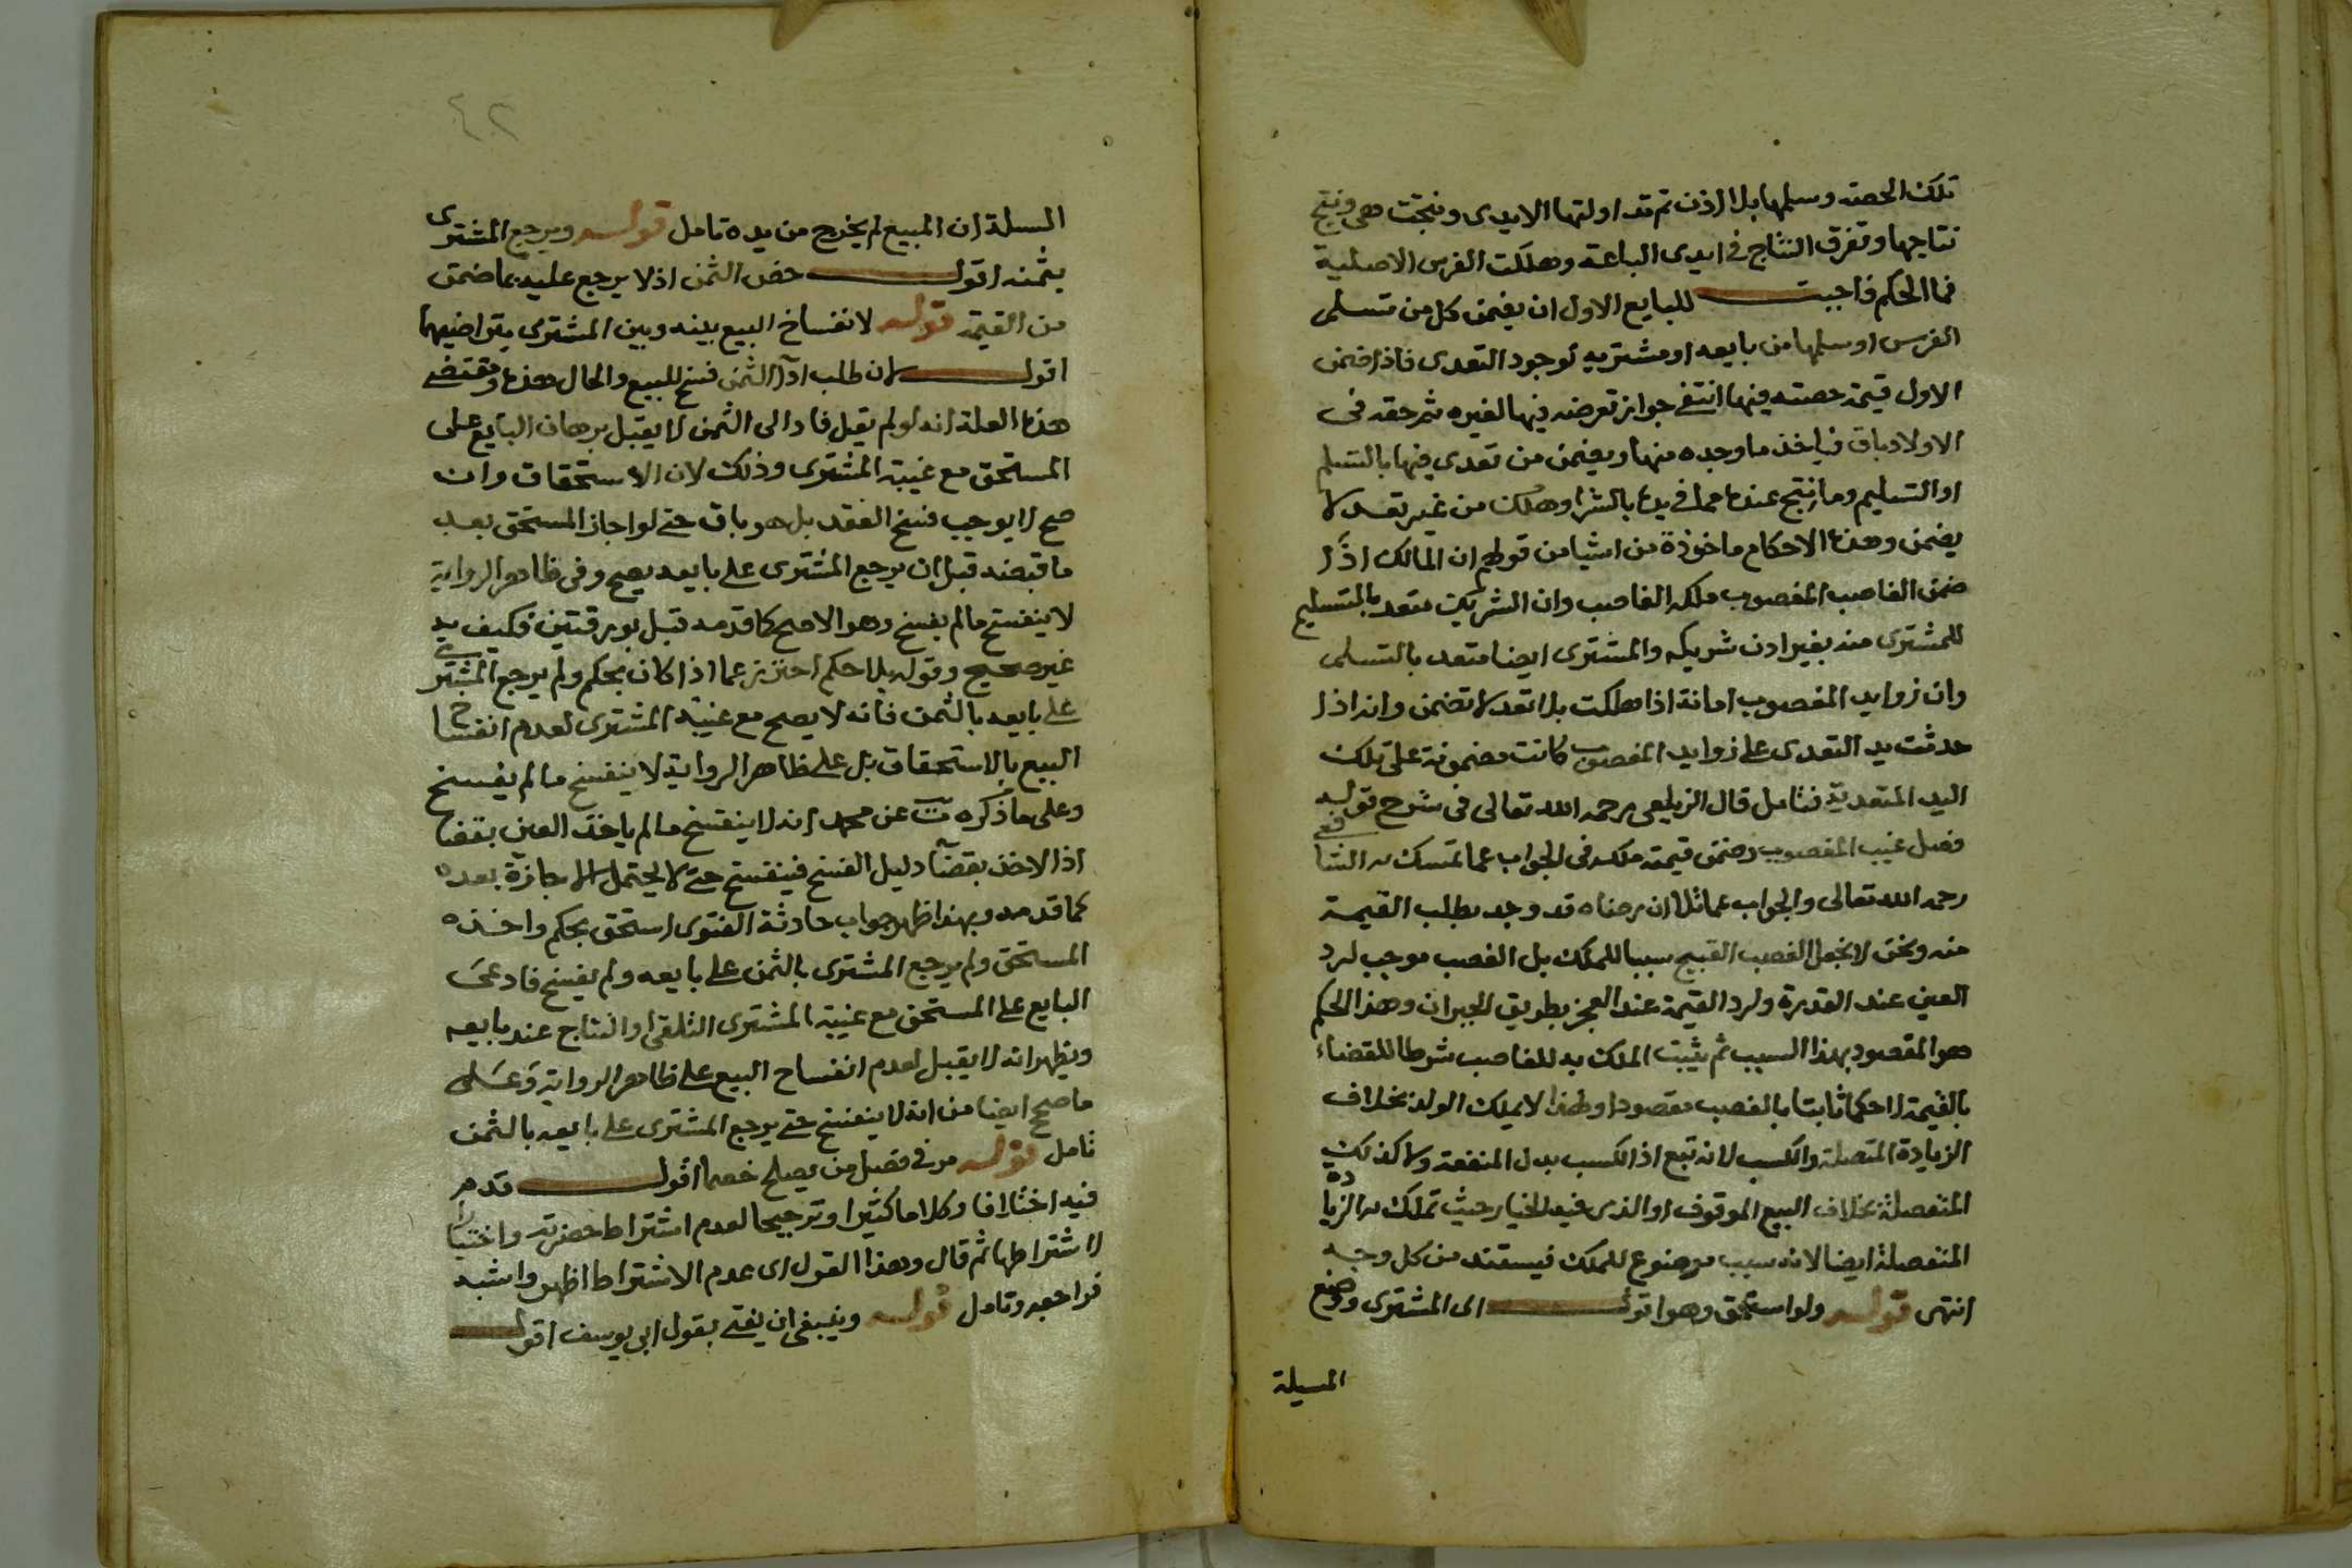 تلك الحصة وسلمها بلا اذن ثم تداولتها الايدى ونتجت هى ونتج
نتاجها وتفرق النتاج فى ايدى الباعة وهلكت الفرس الاصلية
فما الحكم فاجبت للبايع الاول ان يضمن كل من تسلم
الفرس او سلمها من بايعه او مشتريه لوجود التعدى فاذا ضمن
الاول قيمة حصته فيها انتفى جواز تعرضه فيها لغيره ثم حقه فى
الاولاد باق فياخذ ما وجده منها ويضمن من تعدى فيها بالتسلم
او التسليم وما نتج عنده مما فى يده بالشرا وهلك من غير تعد لا
يضمن وهذه الاحكام ماخوذة من اشيا من قولهم ان المالك اذا
ضمن الغاصب المغصوب ملكه الغاصب وان الشريك متعد بالتسليم
للمشترى منه بغير اذن شريكه والمشترى ايضا متعد بالتسلم
وان زوايد المغصوب امانة اذا هلكت بلا تعد لا تضمن وانه اذا
حدثت يد التعدى على زوايد المغصوب كانت مضمونة على تلك
اليد المتعدية فتامل قال الزيلعى رحمه الله تعالى فى شرح قوله
فصل غيب المغصوب وضمن قيمته ملكه فى الجواب عما تمسك به الشافعى
رحمه الله تعالى والجواب عما تلا ان رضاه قد وجد بطلب القيمة
منه ونحن لا نجعل الغصب القبيح سببا للملك بل الغصب موجب لرد
العين عند القدرة ولرد القيمة عند العجز بطريق الجبران وهذا الحكم
هو المقصود بهذا السبب ثم يثبت الملك به للغاصب شرطا للقضاء
بالقيمة لا حكما ثابتا بالغصب مقصودا ولهذا لا يملك الولد بخلاف
الزيادة المتصلة والكسب لانه تبع اذ الكسب بدل المنفعة ولا كذلك
المنفصلة بخلاف البيع الموقوف او الذى فيه الخيار حيث تملك به الزيادة
المنفصلة ايضا لانه سبب موضوع للملك فيستند من كل وجه
انتهى قوله ولو استحق وهو اقول الى المشترى وضع
المسيلة
٤٢
المسيلة ان المبيع لم يخرج من يده تامل قوله ويرجع المشترى
بثمنه اقول خص الثمن اذ لا يرجع عليه بما ضمن
من القيمة قوله لانفساخ البيع بينه وبين المشترى بتراضيهما
اقول لان طلب ادآ الثمن فسخ للبيع والحال هذه ومقتضى
هذه العلة انه لو لم يقل فاد الى الثمن لا يقبل برهان البايع على
المستحق مع غيبة المشترى وذلك لان الاستحقاق وان
صح لا يوجب فسخ العقد بل هو باق حتى لو اجاز المستحق بعد
ما قبضه قبل ان يرجع المشترى على بايعه يصح وفى ظاهر الرواية
لا ينفسخ ما لم يفسخ وهو الاصح كما قدمه قبل بورقتين فكيف
غير صحيح وقوله بلا حكم احترز عما اذا كان بحكم ولم يرجع المشترى
على بايعه بالثمن فانه لا يصح مع غيبة المشترى لعدم انفساخ
البيع بالاستحقاق بل على ظاهر الرواية لا ينفسخ ما لم يفسخ
وعلى ما ذكره ت عن محمد انه لا ينفسخ ما لم ياخذ العين بقضا
اذ الاخذ بقضآ دليل الفسخ فينفسخ حتى لا يحتمل الاجازة بعده
كما قدمه وبهذا ظهر جواب حادثة الفتوى استحق بحكم واخذه
المستحق ولم يرجع المشترى بالثمن على بايعه ولم يفسخ فادعى
البايع على المستحق مع غيبة المشترى التلقى او النتاج عند بايعه
ويظهر انه لا يقبل لعدم انفساخ البيع على ظاهر الرواية وعلى
ما صحح ايضا من انه لا ينفسخ حتى يرجع المشترى على بايعه بالثمن
تامل قوله مر فى فصل من يصلح خصما اقول قدم
فيه اختلافا وكلاما كثيرا وترجيحا لعدم اشتراط حضرته واختيارا
لاشتراطها ثم قال وهذا القول اى عدم الاشتراط اظهر واشبه
فراجعه وتامل قوله وينبغى ان يفتى بقول ابى يوسف اقول